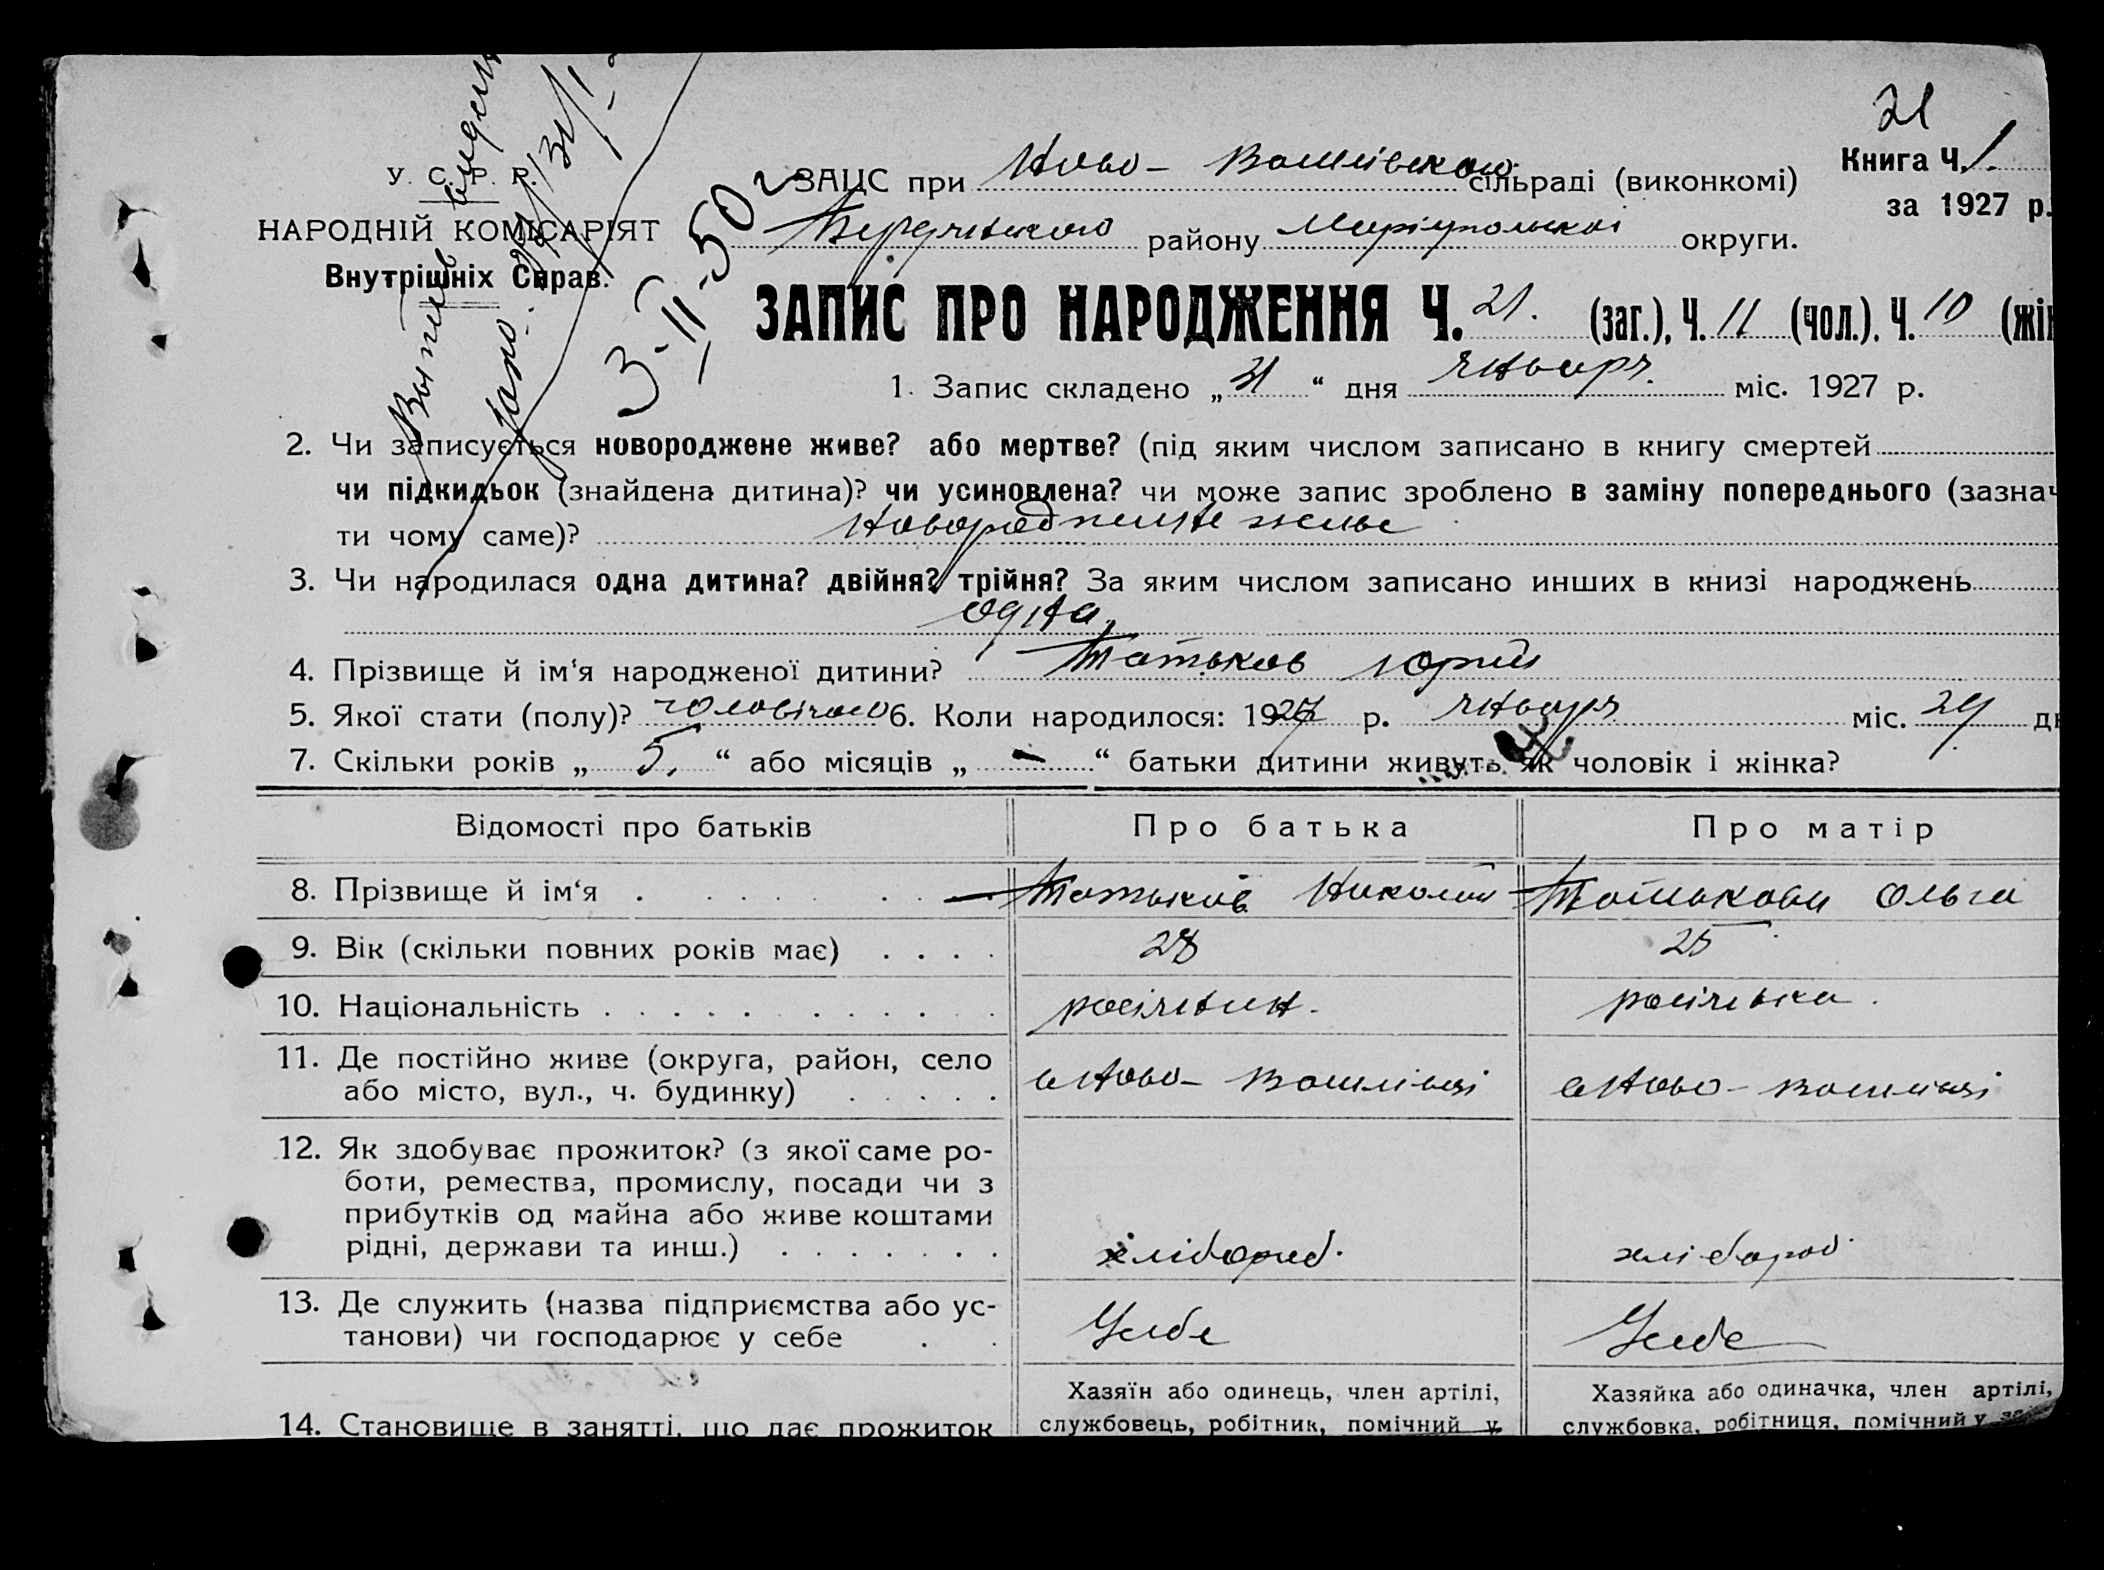 21
У. С. Р. Р.
НАРОДНІЙ КОМІСАРІЯТ
Внутрішніх Справ.
3-II-50 г
ЗАЦС при Ново- сільраді (виконкомі)
Книга Ч. 1.
за 1927 р.
району Маріупольської округи.
ЗАПИС ПРО НАРОДЖЕННЯ Ч. 21. (заг.), Ч. 11 (чол.), Ч. 10 (жін
1. Запис складено „31“ дня января міс. 1927 р.
2. Чи записується новороджене живе? або мертве? (під яким числом записано в книгу смертей
чи підкидьок (знайдена дитина)? чи усиновлена? чи може запис зроблено в заміну попереднього (зазнач
ти чому саме)? живе
3. Чи народилася одна дитина? двійня? трійня? За яким числом записано инших в книзі народжень
одна
4. Прізвище й ім‘я народженої дитини? Татьков Юрий
5. Якої стати (полу)? чоловічого 6. Коли народилося: 1927 р. января міс. 29 дн
7. Скільки років „5.“ або місяців „-“ батьки дитини живуть як чоловік і жінка?
Відомості про батьків Про батька Про матір
8. Прізвище й ім‘я Татьков Николай Татькова Ольга
9. Вік (скільки повних років має) 28 25
10. Національність росіянин. росіянка.
11. Де постійно живе (округа, район, село
або місто, вул., ч. будинку)
12. Як здобуває прожиток? (з якої саме ро-
боти, ремества, промислу, посади чи з
прибутків од майна або живе коштами
рідні, держави та инш.) хлібороб. хлібороб.
13. Де служить (назва підприємства або ус-
танови) чи господарює у себе У себе У себе
Хазяїн або одинець, член артілі, Хазяйка або одиначка, член артілі,
14. Становище в занятті, що дає прожиток службовець, робітник, помічний у службовка, робітниця, помічний у